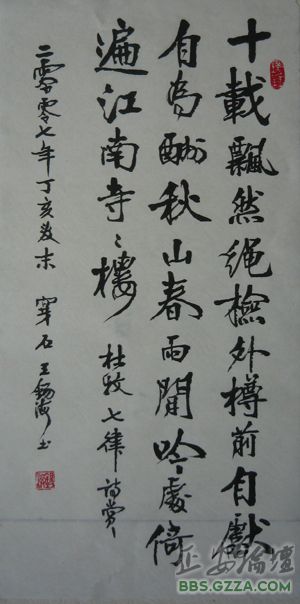 十載飄然绳檢外樽前自獻
自為酬秋山春雨閒吟處倚
遍江南寺々樓 杜牧七律詩賞
二零零七年丁亥岁末 穿石王錫海书
正安論壇
BBS.GZZA.COM